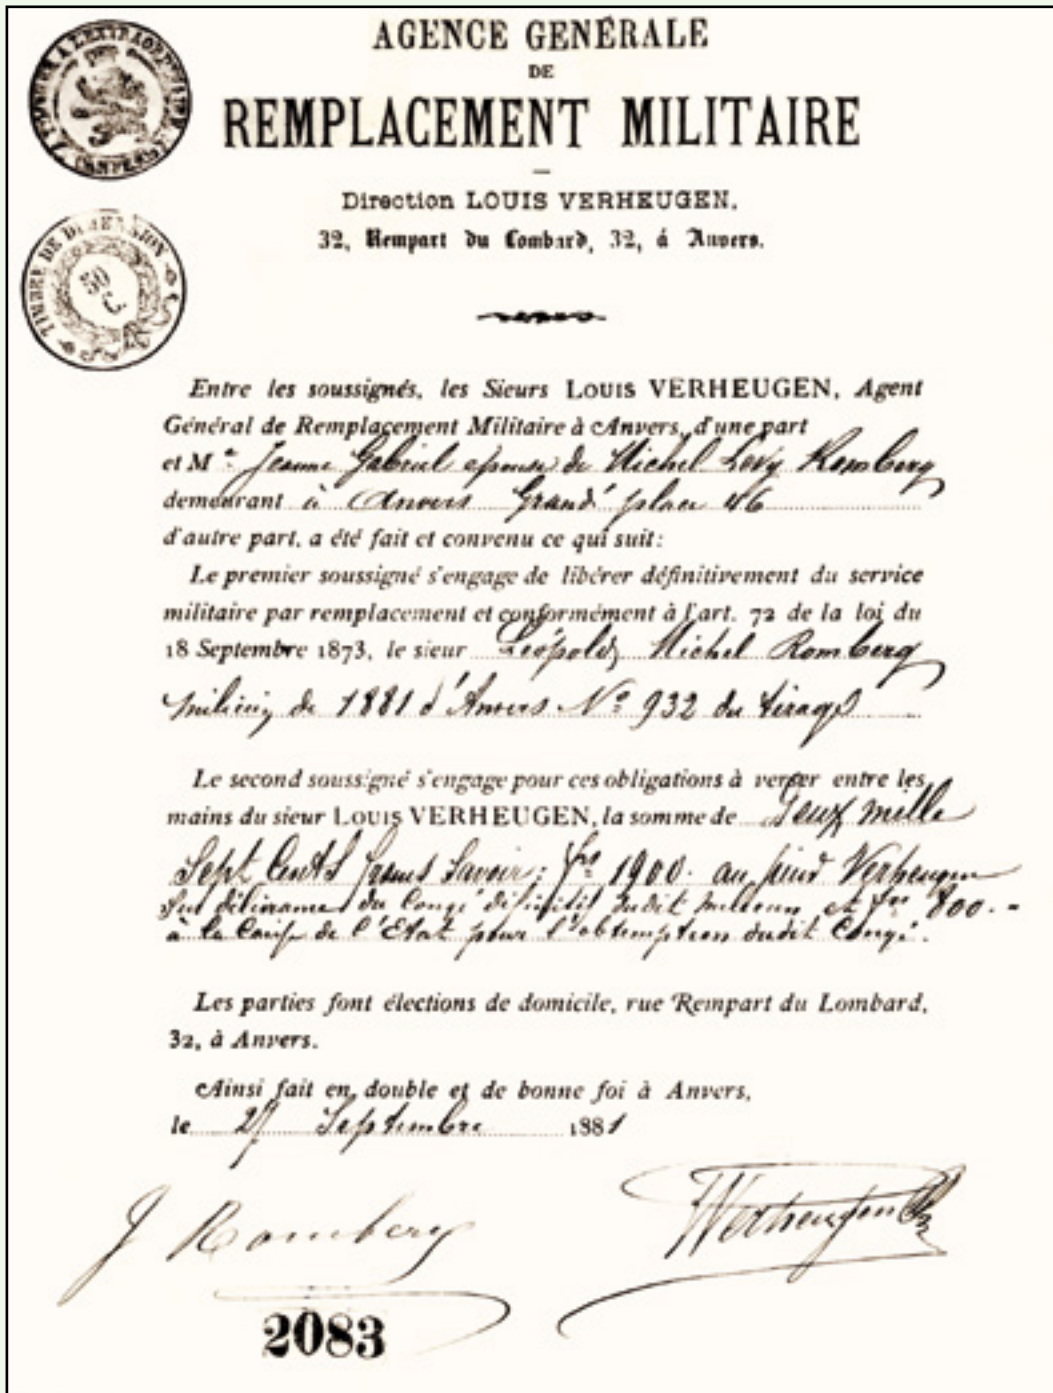 TIMBRE DE DIMENSION
AGENCE GÉNÉRALE
DE
REMPLACEMENT MILITAIRE
Direction LOUIS VERHEUGEN,
32, Rempart du Lombard, 32, á Anvers.
Entre les soussignés, les Sieurs LOUIS VERHEUGEN, Agent
Général de Remplacement Militaire à Anvers, d'une part
et M Jeanne Gabriel epouse de Michel Levy Romberg
demeurant à Anvers Grand' place 46
d'autre part, a été fait et convenu ce qui suit:
Le premier soussigné s'engage de libérer définitivement du service
militaire par remplacement et conformément à l'art. 72 de la loi du
18 Septembre 1873, le sieur Léopold Michel Romberg
milicien de 1881 d'Anvers Nº 932 du tirage
Le second soussigné s'engage pour ces obligations à verser entre les
mains du sieur LOUIS VERHEUGEN, la somme de Deux mille
Sept Cents francs Savoir: frs 1900. au sieur Verheugen
du Congé définitif dudit milicien et frs 800.-
à la Caisse de l'Etat pour l'obtemption dudit Congé.
Les parties font élections de domicile, rue Rempart du Lombard,
32, à Anvers.
Ainsi fait en double et de bonne foi à Anvers,
le 27 Septembre 1881
J Romberg
Verheugen
2083